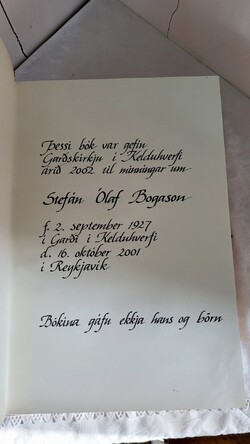 Þessi bók var gefin
Garðskirkju í Kelduhverfi
árið 2002 til minningar um
Stefán Ólaf Bogason
f. 2. september 1927
í Garði í Kelduhverfi
d. 16. október 2001
í Reykjavík
Bókina gáfu ekkja hans og börn